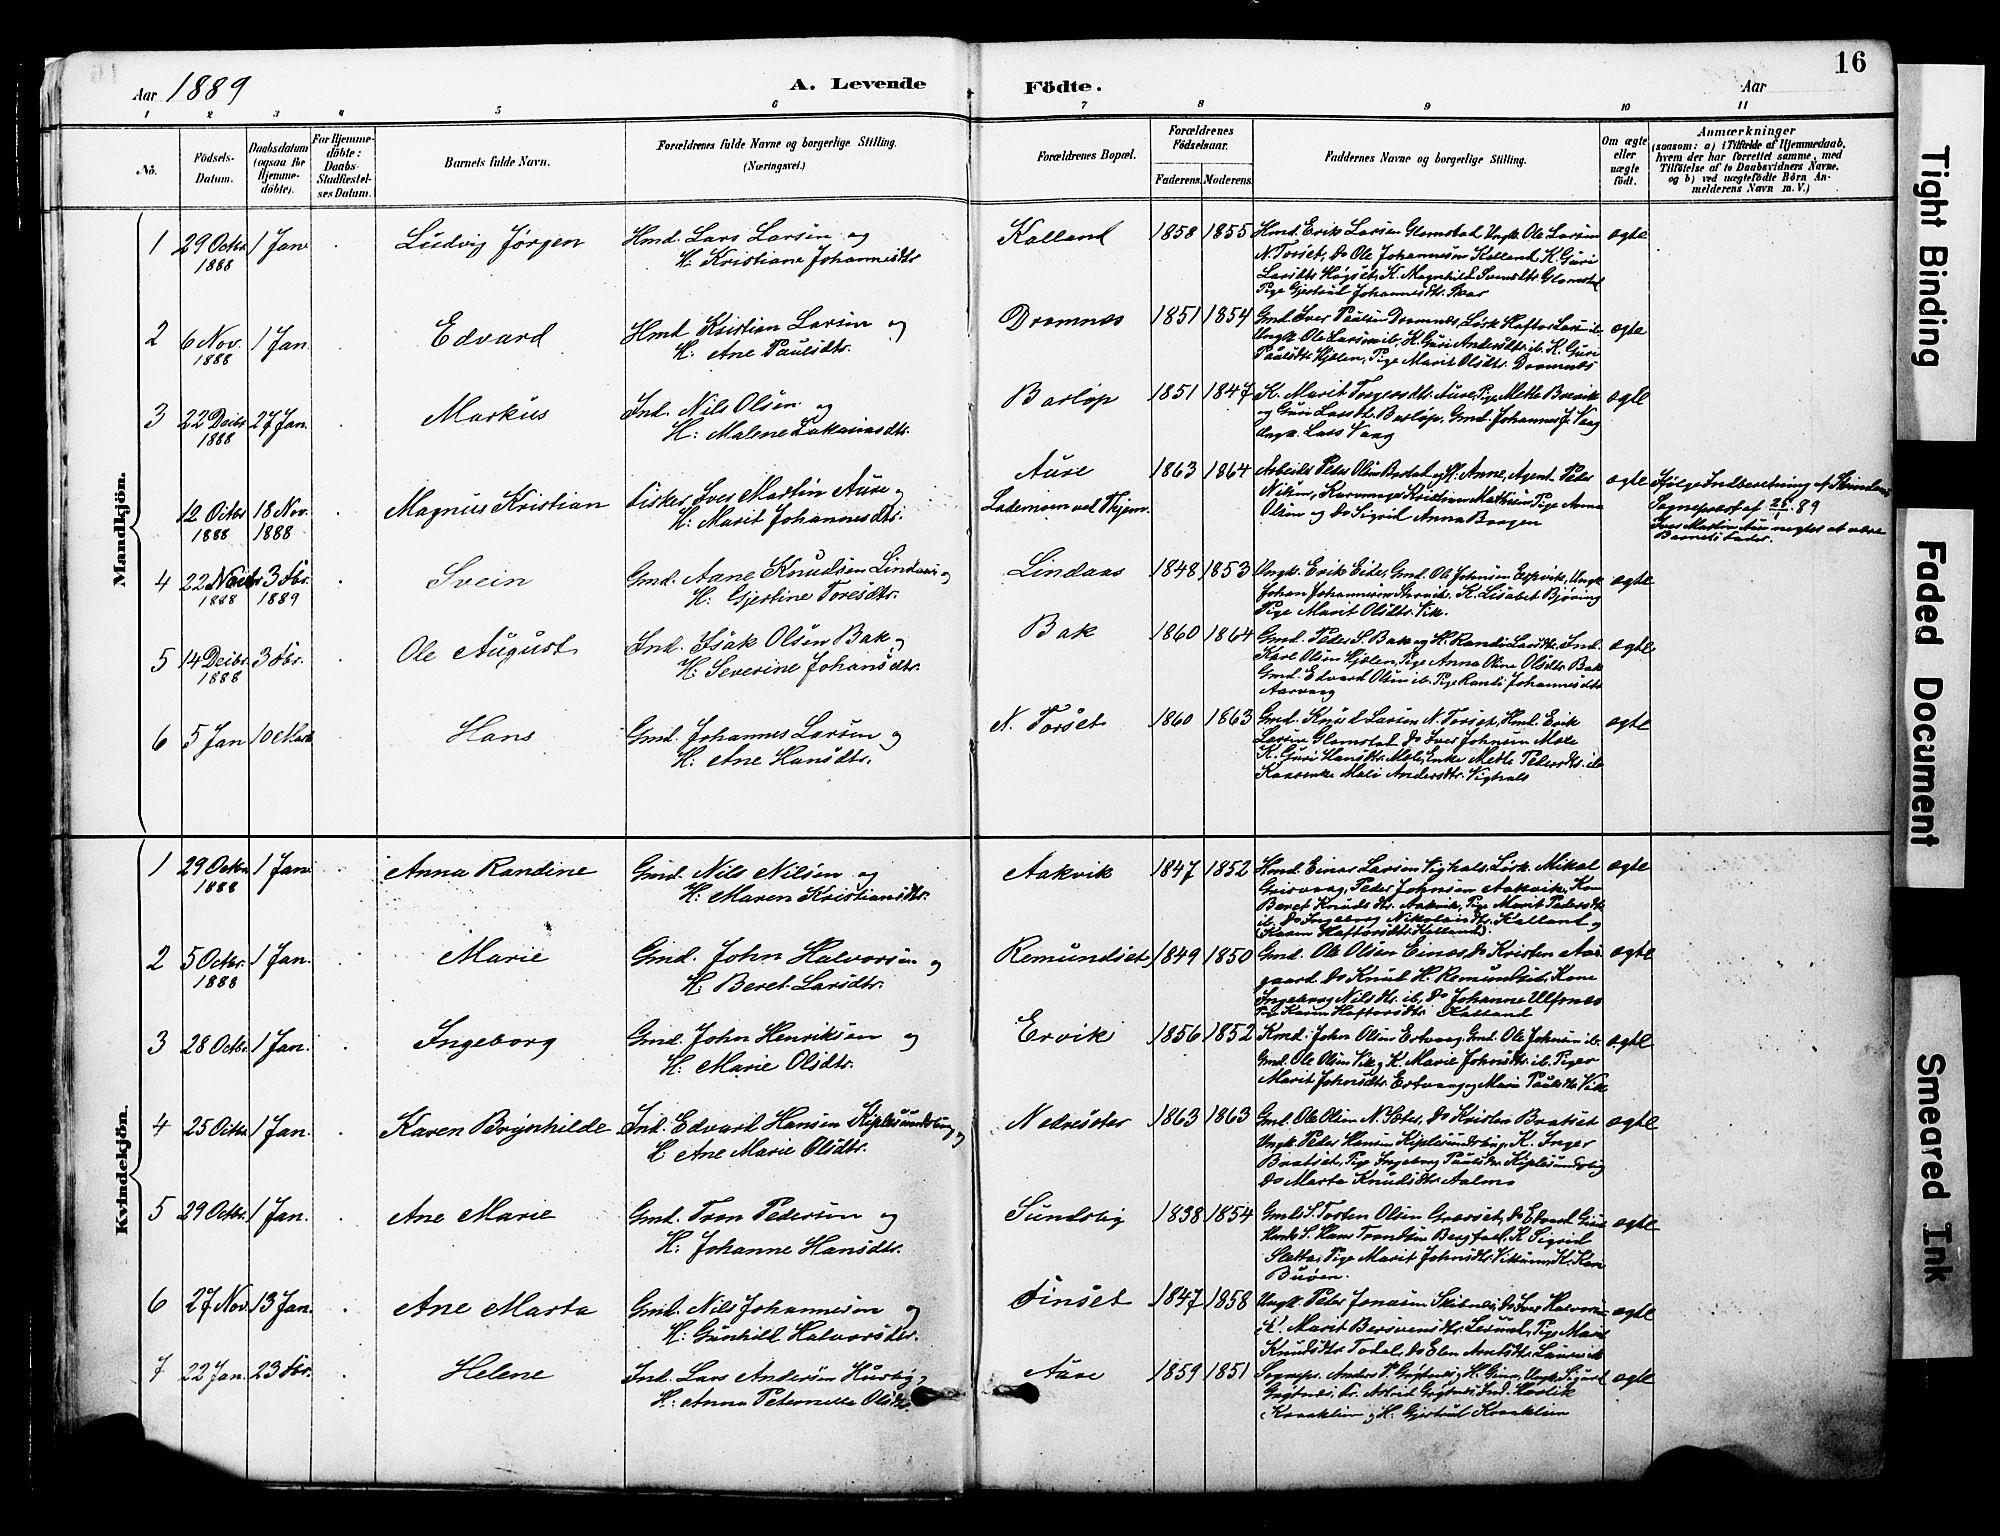 16
Aar 1889 A. Levende Födte. Aar
1 2 3 4 5 6 7 8 9 10 11
No. Födsels-Datum. Daabsdatum (ogsaa for Hjemme-döbte). For Hjemme-döbte: Daabs-Stadfæstel-ses Datum. Barnets fulde Navn. Forældrenes fulde Navne og borgerlige Stilling. (Næringsvei.) Forældrenes Bopæl. Forældrenes Födselsaar. Faderens. Moderens. Faddernes Navne og borgerlige Stilling. Om ægte eller uægte födt. Anmærkninger (saasom: a) i Tilfælde af Hjemmedaab, hvem der har forrettet samme, med Tilföielse af to Daabsvidners Navne, og b) ved uægtefödte Börn An-melderens Navn m. V.)
Mandkjön.
1 29 Octbr. 1888 1 Jan Ludvig Jørgen Hmd. Lars Larsen og H: Kristiane Johannesdtr. Kalland 1858 1855 Hmd. Erik Larsen Glomstad, Ungk. Ole Larsen
N. Torset, Do Ole Johannesen Kalland, K. Guri
Larsdtr. Høgset, K. Magnhild Svendsdtr. Glomstad
Pige Gjertrud Johannesdtr. Skar ægte
2 6 Nov. 1888 1 Jan. Edvard Hmd Kristian Larsen og H: Ane Paulsdtr. Dromnes 1851 1854 Gmd. Iver Paulsen Dromnes, Løsk Haftor Larsen ib.
Ungk. Ole Larsen ib, H. Guri Andersdtr. ib. K. Guri
Paulsdtr. Hjelen, Pige Marit Olsdtr. Dromnes ægte
3 22 Decbr. 1888 27 Jan. Markus Ind. Nils Olsen og H: Malene Sakariasdtr. Barløp 1851 1847 K. Marit Torgersdtr. Aure, Pige Mette Brevik
og Guri Larsdtr. Barløp, Gmd. Johannes J. Vaag
Ungk. Lars Vaag ægte
12 Octbr. 1888 18 Nov. 1888 Magnus Kristian Fisker Iver Martin Aure og H: Marit Johannesdtr. Aure
Lademoen ved Thjem. 1863 1864 Arbeider Peter Olsen og H. Anne, Agent Peder
Nilsen, Kristian Mathisen Pige Anna
Olsen og Do Sigrid Anna Borgen ægte Ifølge Indberetning af
Sognepræst af 28/1 89
Iver Martin Aure negter at være
Barnets Fader.
4 22 1888 3 Fbr. 1889 Svein Gmd. Aane Knudsen Lindaas og H: Gjertine Toresdtr. Lindaas 1848 1853 Ungk. Erik Eide, Gmd. Ole Johnsen Espvik, Ungk
Johan Johannesen K. Lisabet Bjøring
Pige Marit Olsdtr. Vik. ægte
5 14 Decbr. 1888 3 Fbr. Ole August Ind. Isak Olsen Bak og H: Severine Johansdtr. Bak 1860 1864 Gmd. Peder S. Bak og H. Randi Larsdtr., Ind.
Karl Olsen Hjelen, Pige Anna Oline Olsdtr. Bak
Gmd. Edvard Olsen ib. Pige Randi Johannesdtr.
Aarvaag ægte
6 5 Jan 10 Marts Hans Gmd. Johannes Larsen og H: Ane Hansdtr. N. Torset 1860 1863 Gmd. Knud Larsen N. Torset, Hmd. Erik
Larsen Glomstad, Do Iver Johnsen Mele
K. Guri Hansdtr. Mele, Enke Mette Pedersdtr. ib
Kaarenke Mali Andersdtr. Vighals ægte
Kvindekjön.
1 29 Octbr. 1888 1 Jan. Anna Randine Gmd. Nils Nilsen og H: Maren Kristiansdtr. Aakvik 1847 1852 Hmd. Einar Larsen Vighals, Løsk. Mikal
Grisvaag, Peder Johnsen Aakvik, Kone
Beret Knudsdtr. Aakvik, Pige Marit Pedersdtr
ib, Do Ingeborg Nikolaisdtr. Kalland og
(Karen Haftorsdtr. Kalland). ægte
2 5 Octbr. 1888 1 Jan. Marie Gmd. John Halvorsen og H: Beret Larsdtr. Remundset 1849 1850 Gmd. Ole Olsen Eines, Do Kristen Aas-
gaard, Do Knut H. Remundset, Kone
Ingeborg Nilsdtr. ib, Do Johanne Ulfsnes
Pige Karen Haftorsdtr. Kalland ægte
3 28 Octbr. 1 Jan. Ingeborg Gmd. John Henriksen og H: Marie Olsdtr. Ervik 1856 1852 Kmd. John Olsen Ertvaag, Gmd. Ole Johnsen ib.
Gmd. Ole Olsen Vik, K. Marie Johnsdtr. ib. Piger
Marit Johnsdtr. Ertvaag og Mari Paulsdtr. Vik ægte
4 25 Octbr. 1 Jan. Karen Brynhilde Ind. Edvard Hansen Kiplesundsbug og H: Ane Marie Olsdtr. Nedresæter 1863 1863 Gmd. Ole Olsen N. Sæter, Do Kristen Bratset
Ungk. Peder Hansen Kiplesundsbug, K. Inger
Bratset, Pige Ingeborg Paulsdtr. Kiplesundsbug
Do Marta Knudsdtr. Aalmo ægte
5 29 Octbr. 1 Jan. Ane Marie Gmd. Tron Pedersen og H: Johanne Hansdtr. Sundsbug 1838 1854 Gmd. S. Torsten Olsen Grøsset, Do Edvard
Ungk. S. Hans Trondsen K. Sigrid
Sletta, Pige Marit Johnsdtr. K. Kari
Buøen. ægte
6 27 Nov. 13 Jan. Ane Marta Gmd. Nils Johannesen og H: Gunhild Halvorsdtr. Finset 1847 1858 Ungk. Peter Jonasen Skibnes, Do Iver Halvorsen
K. Marit Bersvensdtr. Lesund, Pige Marit
Knudsdtr. Todal, Do Elen Arntsdtr. Laurvik ægte
7 22 Jan. 23 Fbr. Helene Ind. Lars Andersen Husby og H: Anna Peternelle Olsdtr. Aure 1859 1851 Sognepr. Anders P. Grytnes, H. Gina, Ungk. Sigurd
Grytnes, Fr. Astrid Grytnes, Ind.
Kraaklien og H. Gjertrud Kraaklien ægte
Tight Binding
Faded Document
Smeared Ink